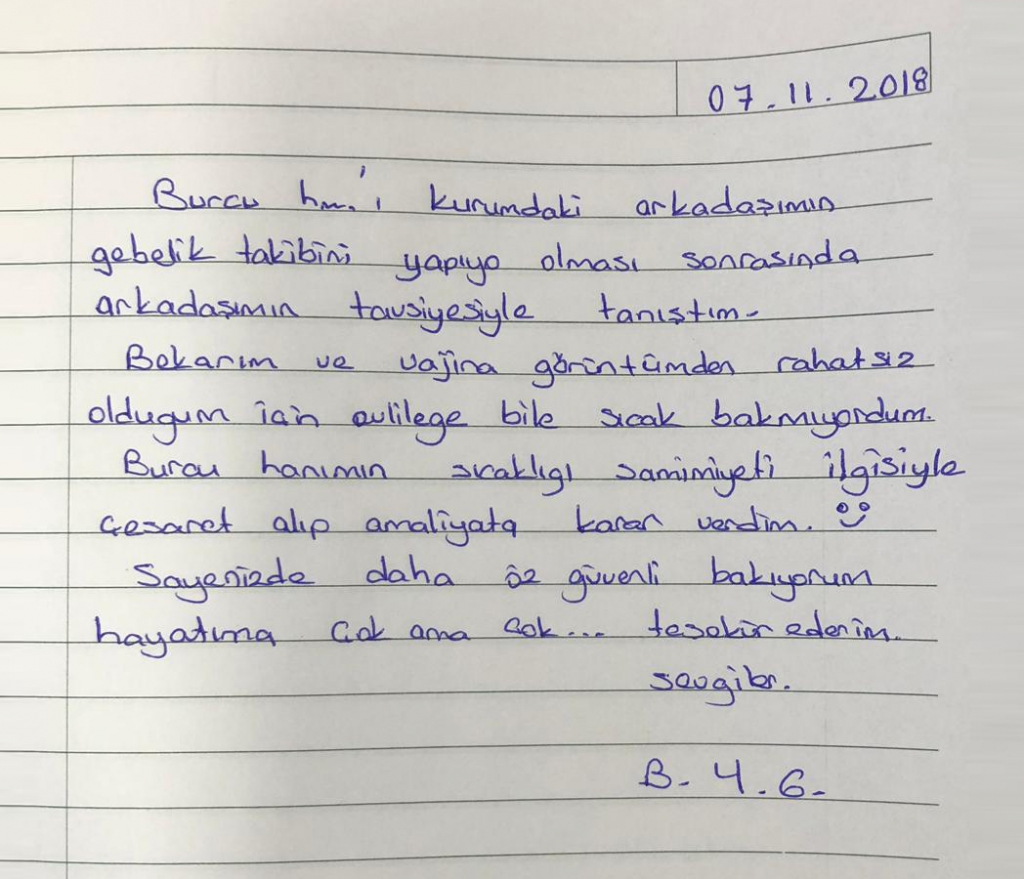 07.11.2018
Burcu hm.'ı kurumdaki arkadaşımın
gebelik takibini yapıyo olması sonrasında
arkadaşımın tavsiyesiyle tanıştım.
Bekarım ve vajina görüntümden rahatsız
oldugum için evlilege bile sıcak bakmıyordum.
Burcu hanımın sıcaklıgı samimiyeti ilgisiyle
cesaret alıp amaliyata karar verdim.
Sayenizde daha öz güvenli bakıyorum
hayatıma Çok ama çok... teşekür ederim.
sevgiler.
B. 4.6.